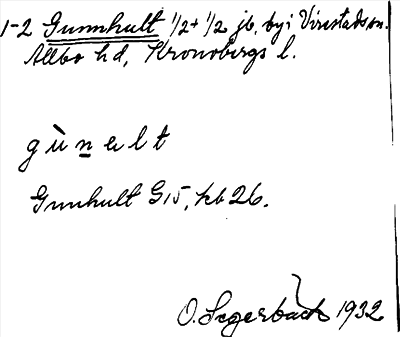 1-2 Gunnhult 1/2 + 1/2 jb. by i Virestads sn.
Allbo hd, Kronobergs l.
gùn̲elt
Gunnhult G15, kb 26.
O. Segerbach 1932